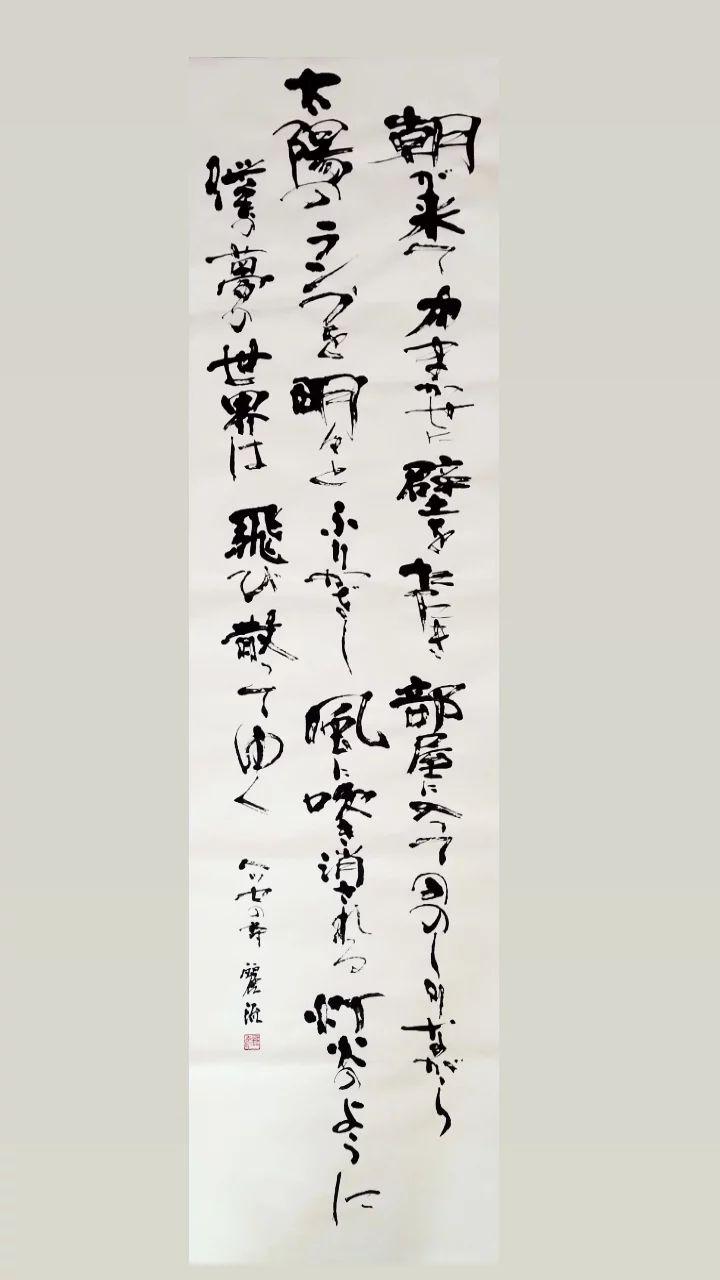 朝が来て力まかせに壁をたたき部屋に入ってののしりながら
太陽のランプを明々とふりかざし風に吹き消される灯火のように
僕の夢の世界は飛び散ってゆく
ヘッセの詩